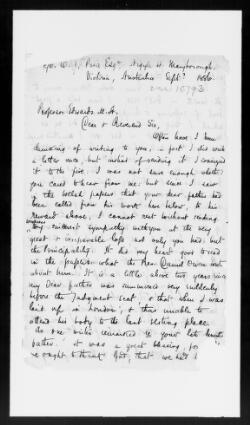 c/o W. Price Esqr Napier St. Maryborough.
Victoria, Australia Septr 1886
10793
Professor Edwards M.A.
Dear & Reverend Sir,
Often have I been
desirous of writing to you, in fact I did write
a letter once, but instead of sending it I consigned
it to the fire. I was not sure enough whether
you cared to hear from me: but since I saw
in the Welsh papers that your dear father had
been called from his work here below, to his
reward above, I cannot rest without sending
my sincerest sympathy with you at the very
great & irreparable loss not only you had but
the Principality. It did my heart good to read
in the papers what the Rev Daniel Owen said
about him. It is a little above two years since
my Dear father was summoned very suddenly
before the Judgment Seat, & that when I was
laid up in London, & thus unable to
attend his body to the last resting place
As one writer remarked to your late lamented
father. It was a great blessing, for
we ought to thank God, that we had